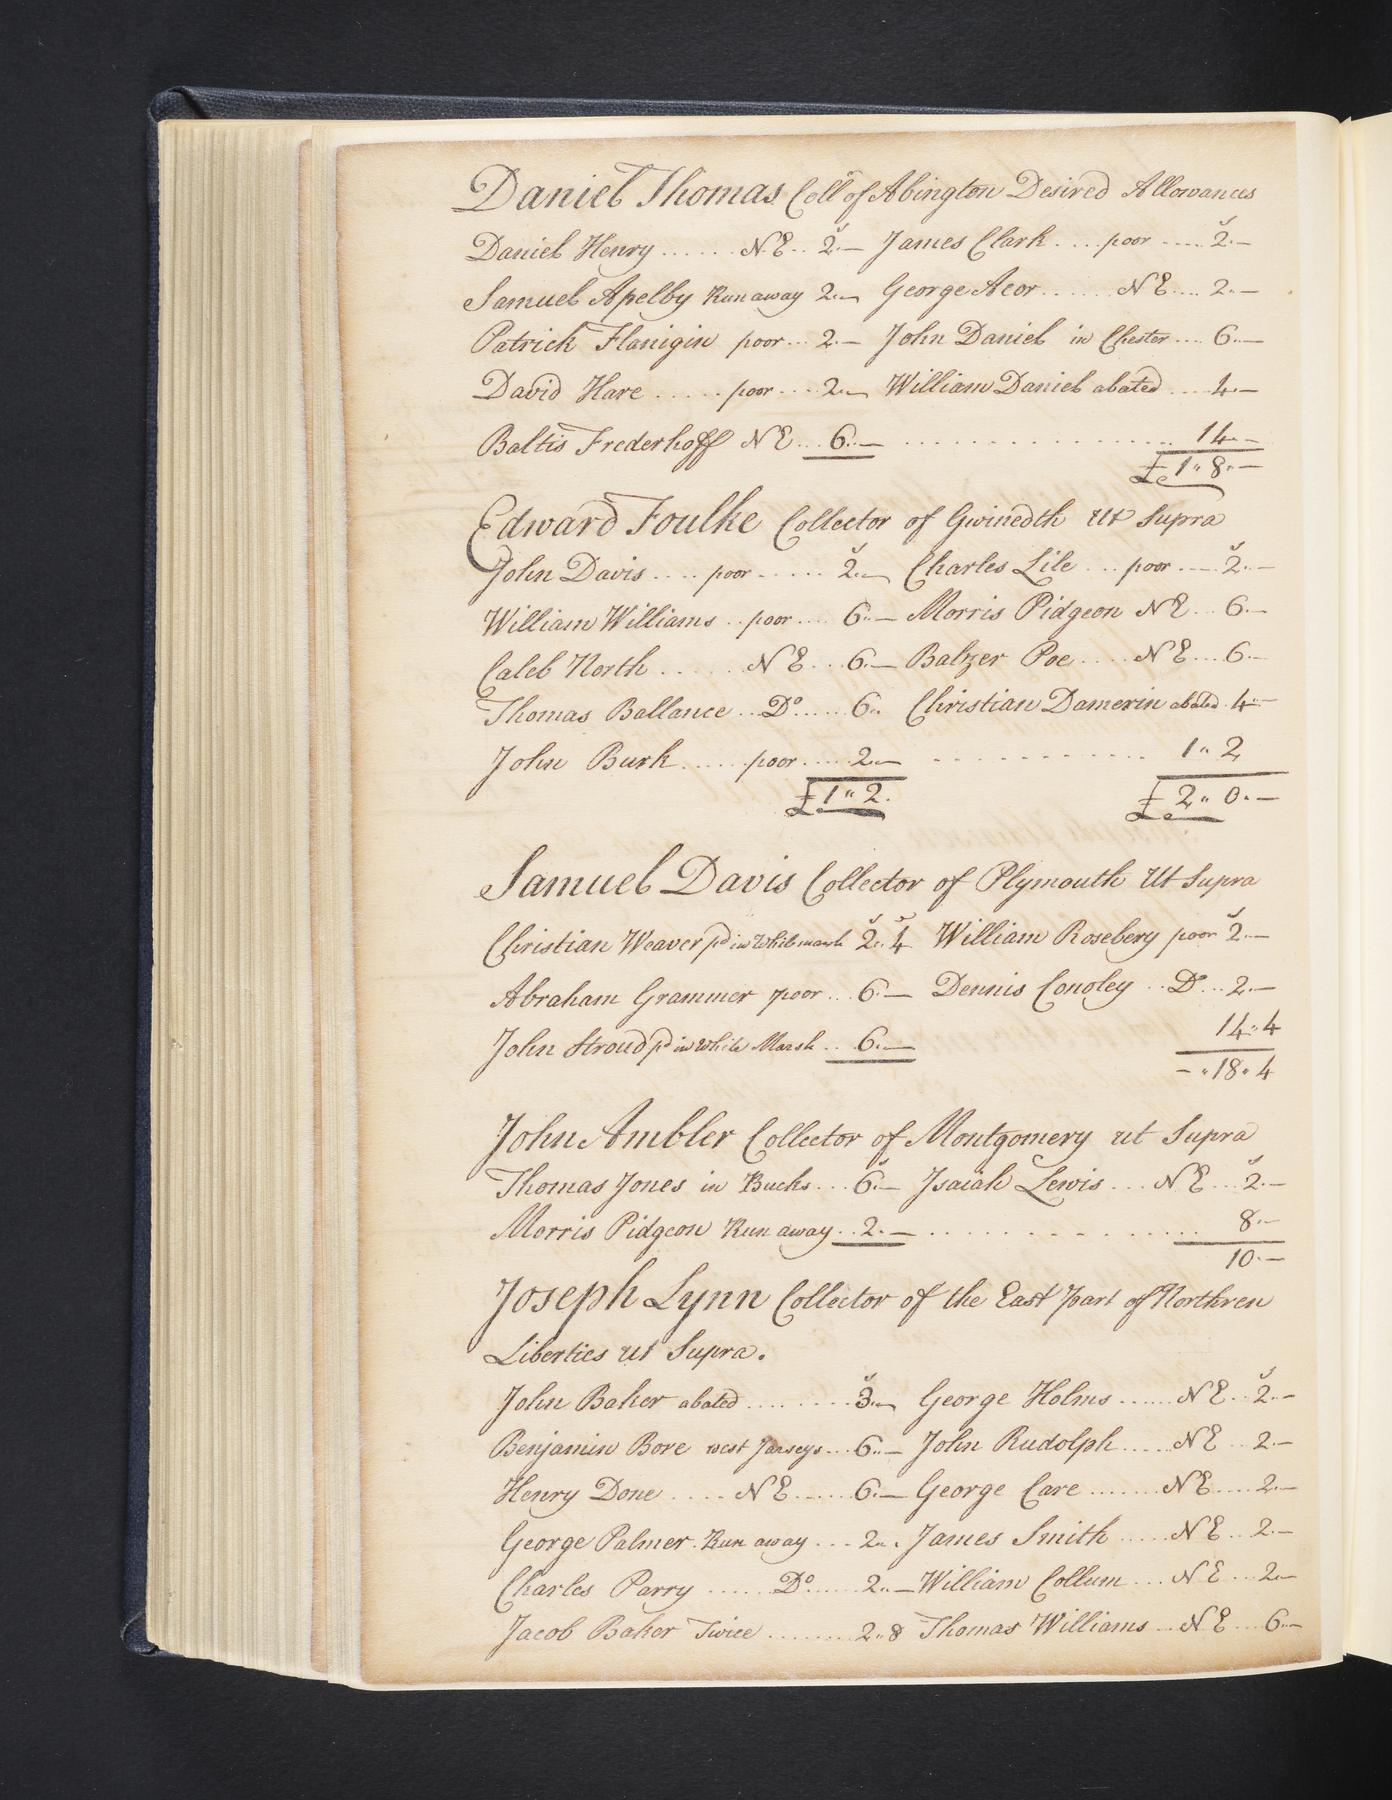 Daniel Thomas Coll.r of Abington Desired Allowances
Daniel Henry ...... NE .. 2s.— James Clark .... poor ..... 2s.—
Samuel Apelby Run away 2..— George Acor ...... NE .... 2.—
Patrick Flanigin poor ... 2.— John Daniel in Chester .... 6..—
David Hare ..... poor .... 2..— William Daniel abated .... 4.—
Baltis Frederhoff NE ... 6..— .................. 14..—
£1..8.—
Edward Foulke Collector of Gwinedth Ut Supra
John Davis .... poor ...... 2s..— Charles Lile ... poor .... 2s..—
William Williams .. poor .... 6..— Morris Pidgeon NE ... 6.—
Caleb North ...... NE ... 6..— Balzer Poe .... NE ... 6.—
Thomas Ballance .. Do ..... 6.. Christian Damerin abated . 4..—
John Burk ..... poor .... 2..— .......... 1..2
£1..2. £2..0.—
Samuel Davis Collector of Plymouth Ut Supra
Christian Weaver pd in Whitemarsh 2..4 William Rosebery poor 2s..—
Abraham Grammer poor ... 6.— Dennis Conoley .. Do ... 2.—
John Stroud pd in White Marsh .. 6..— 14..4
—..18..4
John Ambler Collector of Montgomery ut Supra
Thomas Jones in Bucks ... 6s.— Isaiah Lewis ... NE ... 2s.—
Morris Pidgeon Run away .. 2.— .............. 8.—
10.—
Joseph Lynn Collector of the East Part of Northren
Liberties ut Supra.
John Baker abated ........ 3s..— George Holms ...... NE .. 2s..—
Benjamin Bore west Jarseys ... 6..— John Rudolph ..... NE .. 2..—
Henry Done .... NE ...... 6..— George Care ....... NE .... 2.—
George Palmer . Run away ... 2.. . James Smith ..... NE .. 2.—
Charles Parry ..... Do ..... 2..— William Collum ... NE ... 2.—
Jacob Baker Twice ........ 2..8 Thomas Williams ... NE ... 6..—